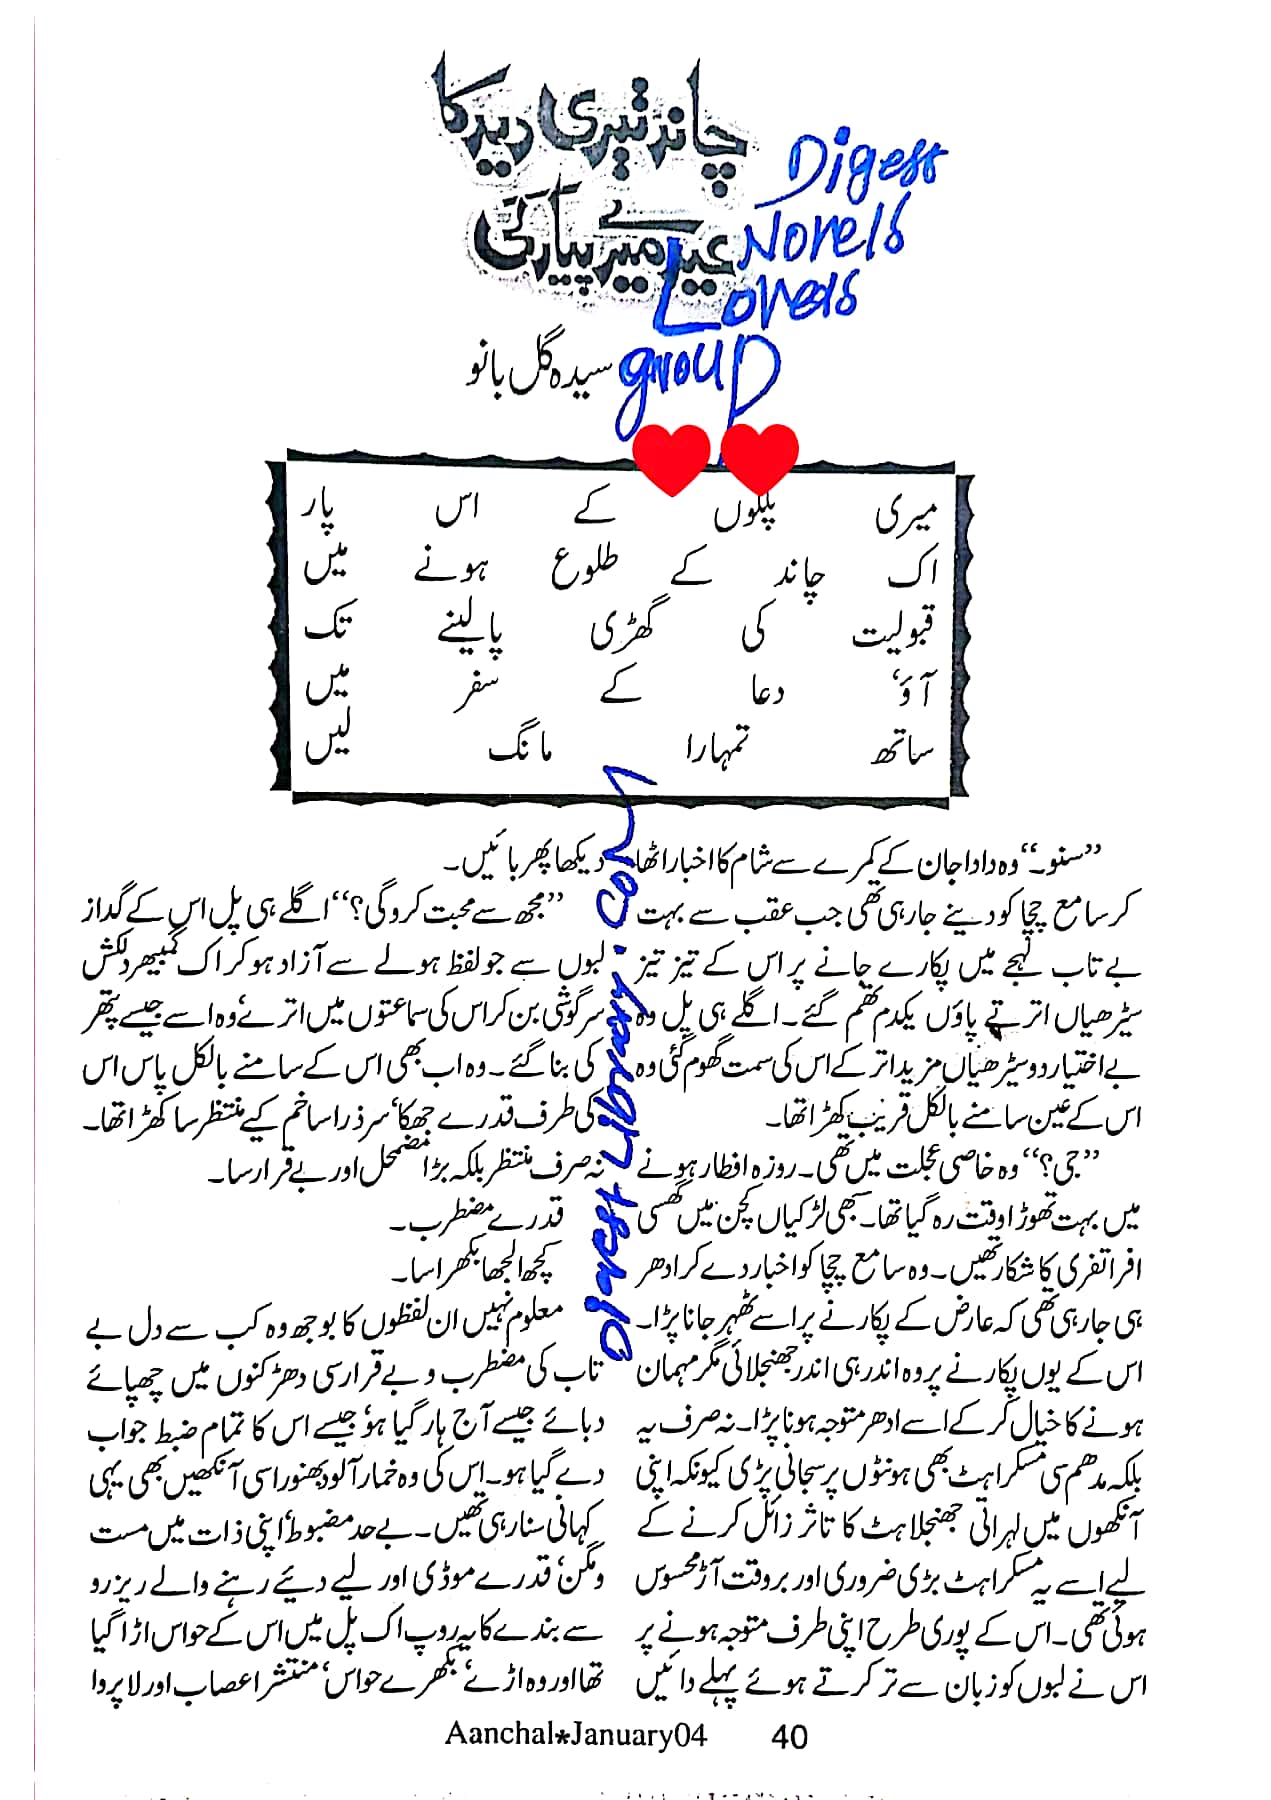 چاند تیری دید کا
عید میرے پیار کی
سیدہ گل بانو
Digest
Novels
Lovers
group
میری پلکوں کے اس پار
اک چاند کے طلوع ہونے میں
قبولیت کی گھڑی پا لینے تک
آؤ، دعا کے سفر میں
ساتھ تمہارا مانگ لیں
”سنو۔“ وہ دادا جان کے کمرے سے شام کا اخبار اٹھا
کر سامع چچا کو دینے جا رہی تھی جب عقب سے بہت
بے تاب لہجے میں پکارے جانے پر اس کے تیز تیز
سیڑھیاں اترتے پاؤں یکدم تھم گئے۔ اگلے ہی پل وہ
بے اختیار دو سیڑھیاں مزید اتر کے اس کی سمت گھوم گئی وہ
اس کے عین سامنے بالکل قریب کھڑا تھا۔
”جی؟“ وہ خاصی عجلت میں تھی۔ روزہ افطار ہونے
میں بہت تھوڑا وقت رہ گیا تھا۔ سبھی لڑکیاں کچن میں گھسی
افراتفری کا شکار تھیں۔ وہ سامع چچا کو اخبار دے کر ادھر
ہی جا رہی تھی کہ عارض کے پکارنے پر اسے ٹھہر جانا پڑا۔
اس کے یوں پکارنے پر وہ اندر ہی اندر جھنجلائی مگر مہمان
ہونے کا خیال کر کے اسے ادھر متوجہ ہونا پڑا۔ نہ صرف یہ
بلکہ مدھم سی مسکراہٹ بھی ہونٹوں پر سجانی پڑی کیونکہ اپنی
آنکھوں میں لہراتی جھنجلاہٹ کا تاثر زائل کرنے کے
لیے اسے یہ مسکراہٹ بڑی ضروری اور بروقت آڑ محسوس
ہوئی تھی۔ اس کے پوری طرح اپنی طرف متوجہ ہونے پر
اس نے لبوں کو زبان سے تر کرتے ہوئے پہلے دائیں
دیکھا پھر بائیں۔
”مجھ سے محبت کرو گی؟“ اگلے ہی پل اس کے گداز
لبوں سے جو لفظ ہولے سے آزاد ہو کر اک گمبھیر دلکش
سرگوشی بن کر اس کی سماعتوں میں اترے، وہ اسے جیسے پتھر
کی بنا گئے۔ وہ اب بھی اس کے سامنے بالکل پاس اس
کی طرف قدرے جھکا، سر ذرا سا خم کیے منتظر سا کھڑا تھا۔
نہ صرف منتظر بلکہ بڑا مضمحل اور بے قرار سا۔
قدرے مضطرب۔
کچھ الجھا بکھرا سا۔
معلوم نہیں ان لفظوں کا بوجھ وہ کب سے دل بے
تاب کی مضطرب و بے قرار سی دھڑکنوں میں چھپائے
دبائے جیسے آج ہار گیا ہو، جیسے اس کا تمام ضبط جواب
دے گیا ہو۔ اس کی وہ خمار آلود بھنورا سی آنکھیں بھی یہی
کہانی سنا رہی تھیں۔ بے حد مضبوط، اپنی ذات میں مست
و مگن، قدرے موڈی اور لیے دیئے رہنے والے ریزرو
سے بندے کا یہ روپ اک پل میں اس کے حواس اڑا گیا
تھا اور وہ اڑے، بکھرے حواس، منتشر اعصاب اور لا پروا
Aanchal*January04 40